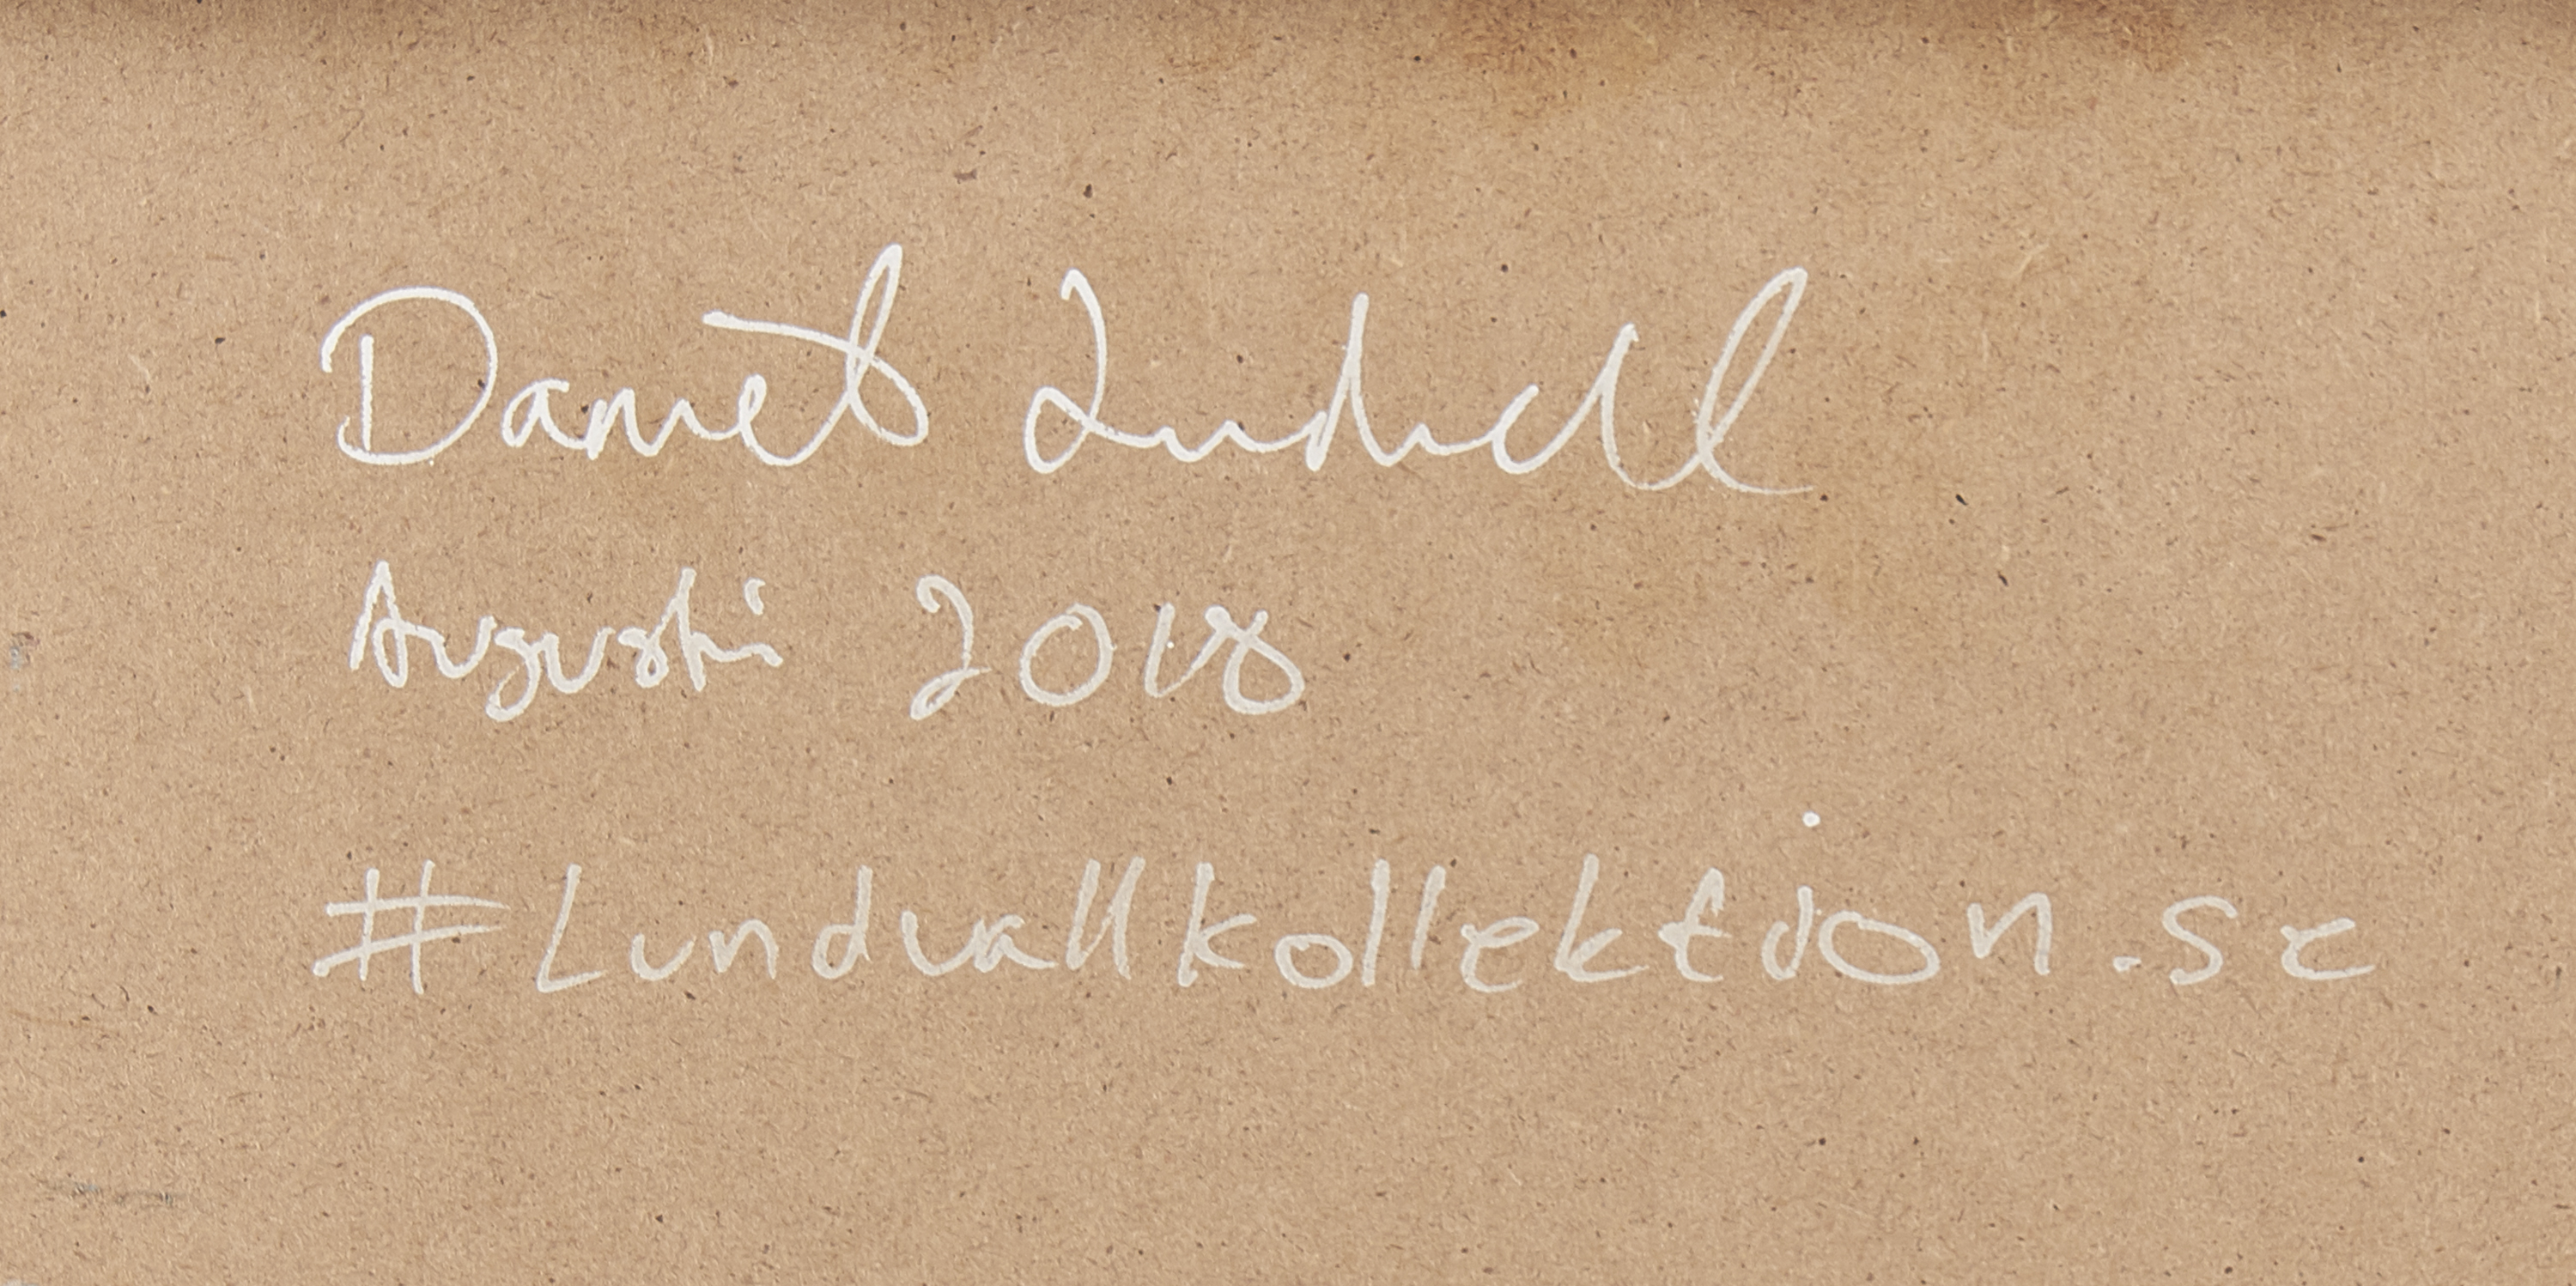 Daniel Lundvall
Augusti 2018
#Lundvallkollektion.se